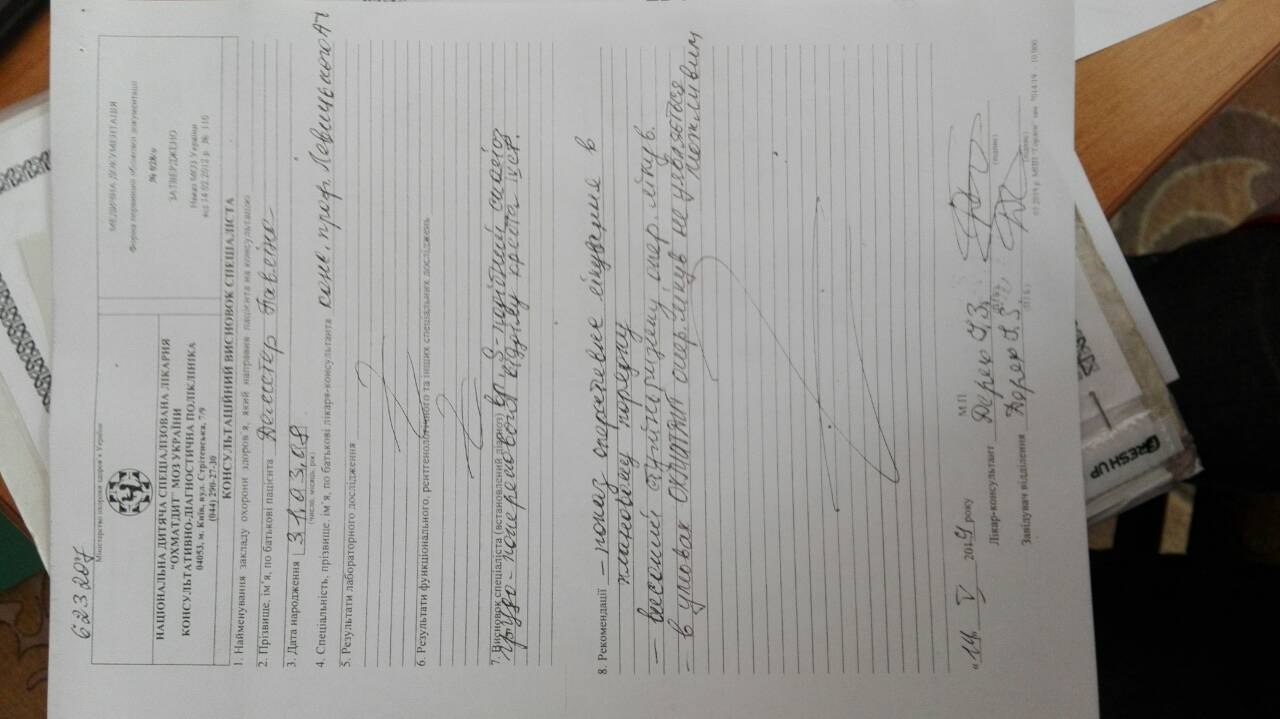 623207
Міністерство охорони здоров'я України
НАЦІОНАЛЬНА ДИТЯЧА СПЕЦІАЛІЗОВАНА ЛІКАРНЯ
"ОХМАТДИТ" МОЗ УКРАЇНИ
КОНСУЛЬТАТИВНО-ДІАГНОСТИЧНА ПОЛІКЛІНІКА
04053, м. Київ, вул. Стрітенська, 7/9
(044) 290-27-30
МЕДИЧНА ДОКУМЕНТАЦІЯ
Форма первинної облікової документації
№ 028/о
ЗАТВЕРДЖЕНО
Наказ МОЗ України
від 14.02.2012 р. № 110
КОНСУЛЬТАЦІЙНИЙ ВИСНОВОК СПЕЦІАЛІСТА
1. Найменування закладу охорони здоров'я, який направив пацієнта на консультацію
2. Прізвище, ім'я, по батькові пацієнта
3. Дата народження 31.03.08
(число, місяць, рік)
4. Спеціальність, прізвище, ім'я, по батькові лікаря-консультанта конс. проф. Левицького А
5. Результати лабораторного дослідження
6. Результати функціонального, рентгенологічного та інших спеціальних досліджень
7. Висновок спеціаліста (встановлений діагноз) сколіоз
грудо-поперекового відділу хребта IV ст.
8. Рекомендації – показ оперативне лікування в
плановому порядку
– високий ступінь ризику опер. лікув.
– в умовах ОХМАТДИТ опер. лікув. не видається
можливим
«14» V 2019 року
М.П.
Лікар-консультант
(підпис)
Завідувач відділення
(підпис)
RESH UP